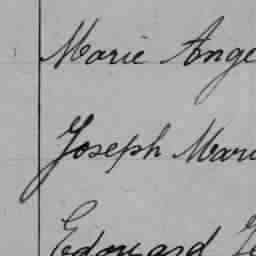 Marie Ange
Joseph Mari
Edouard